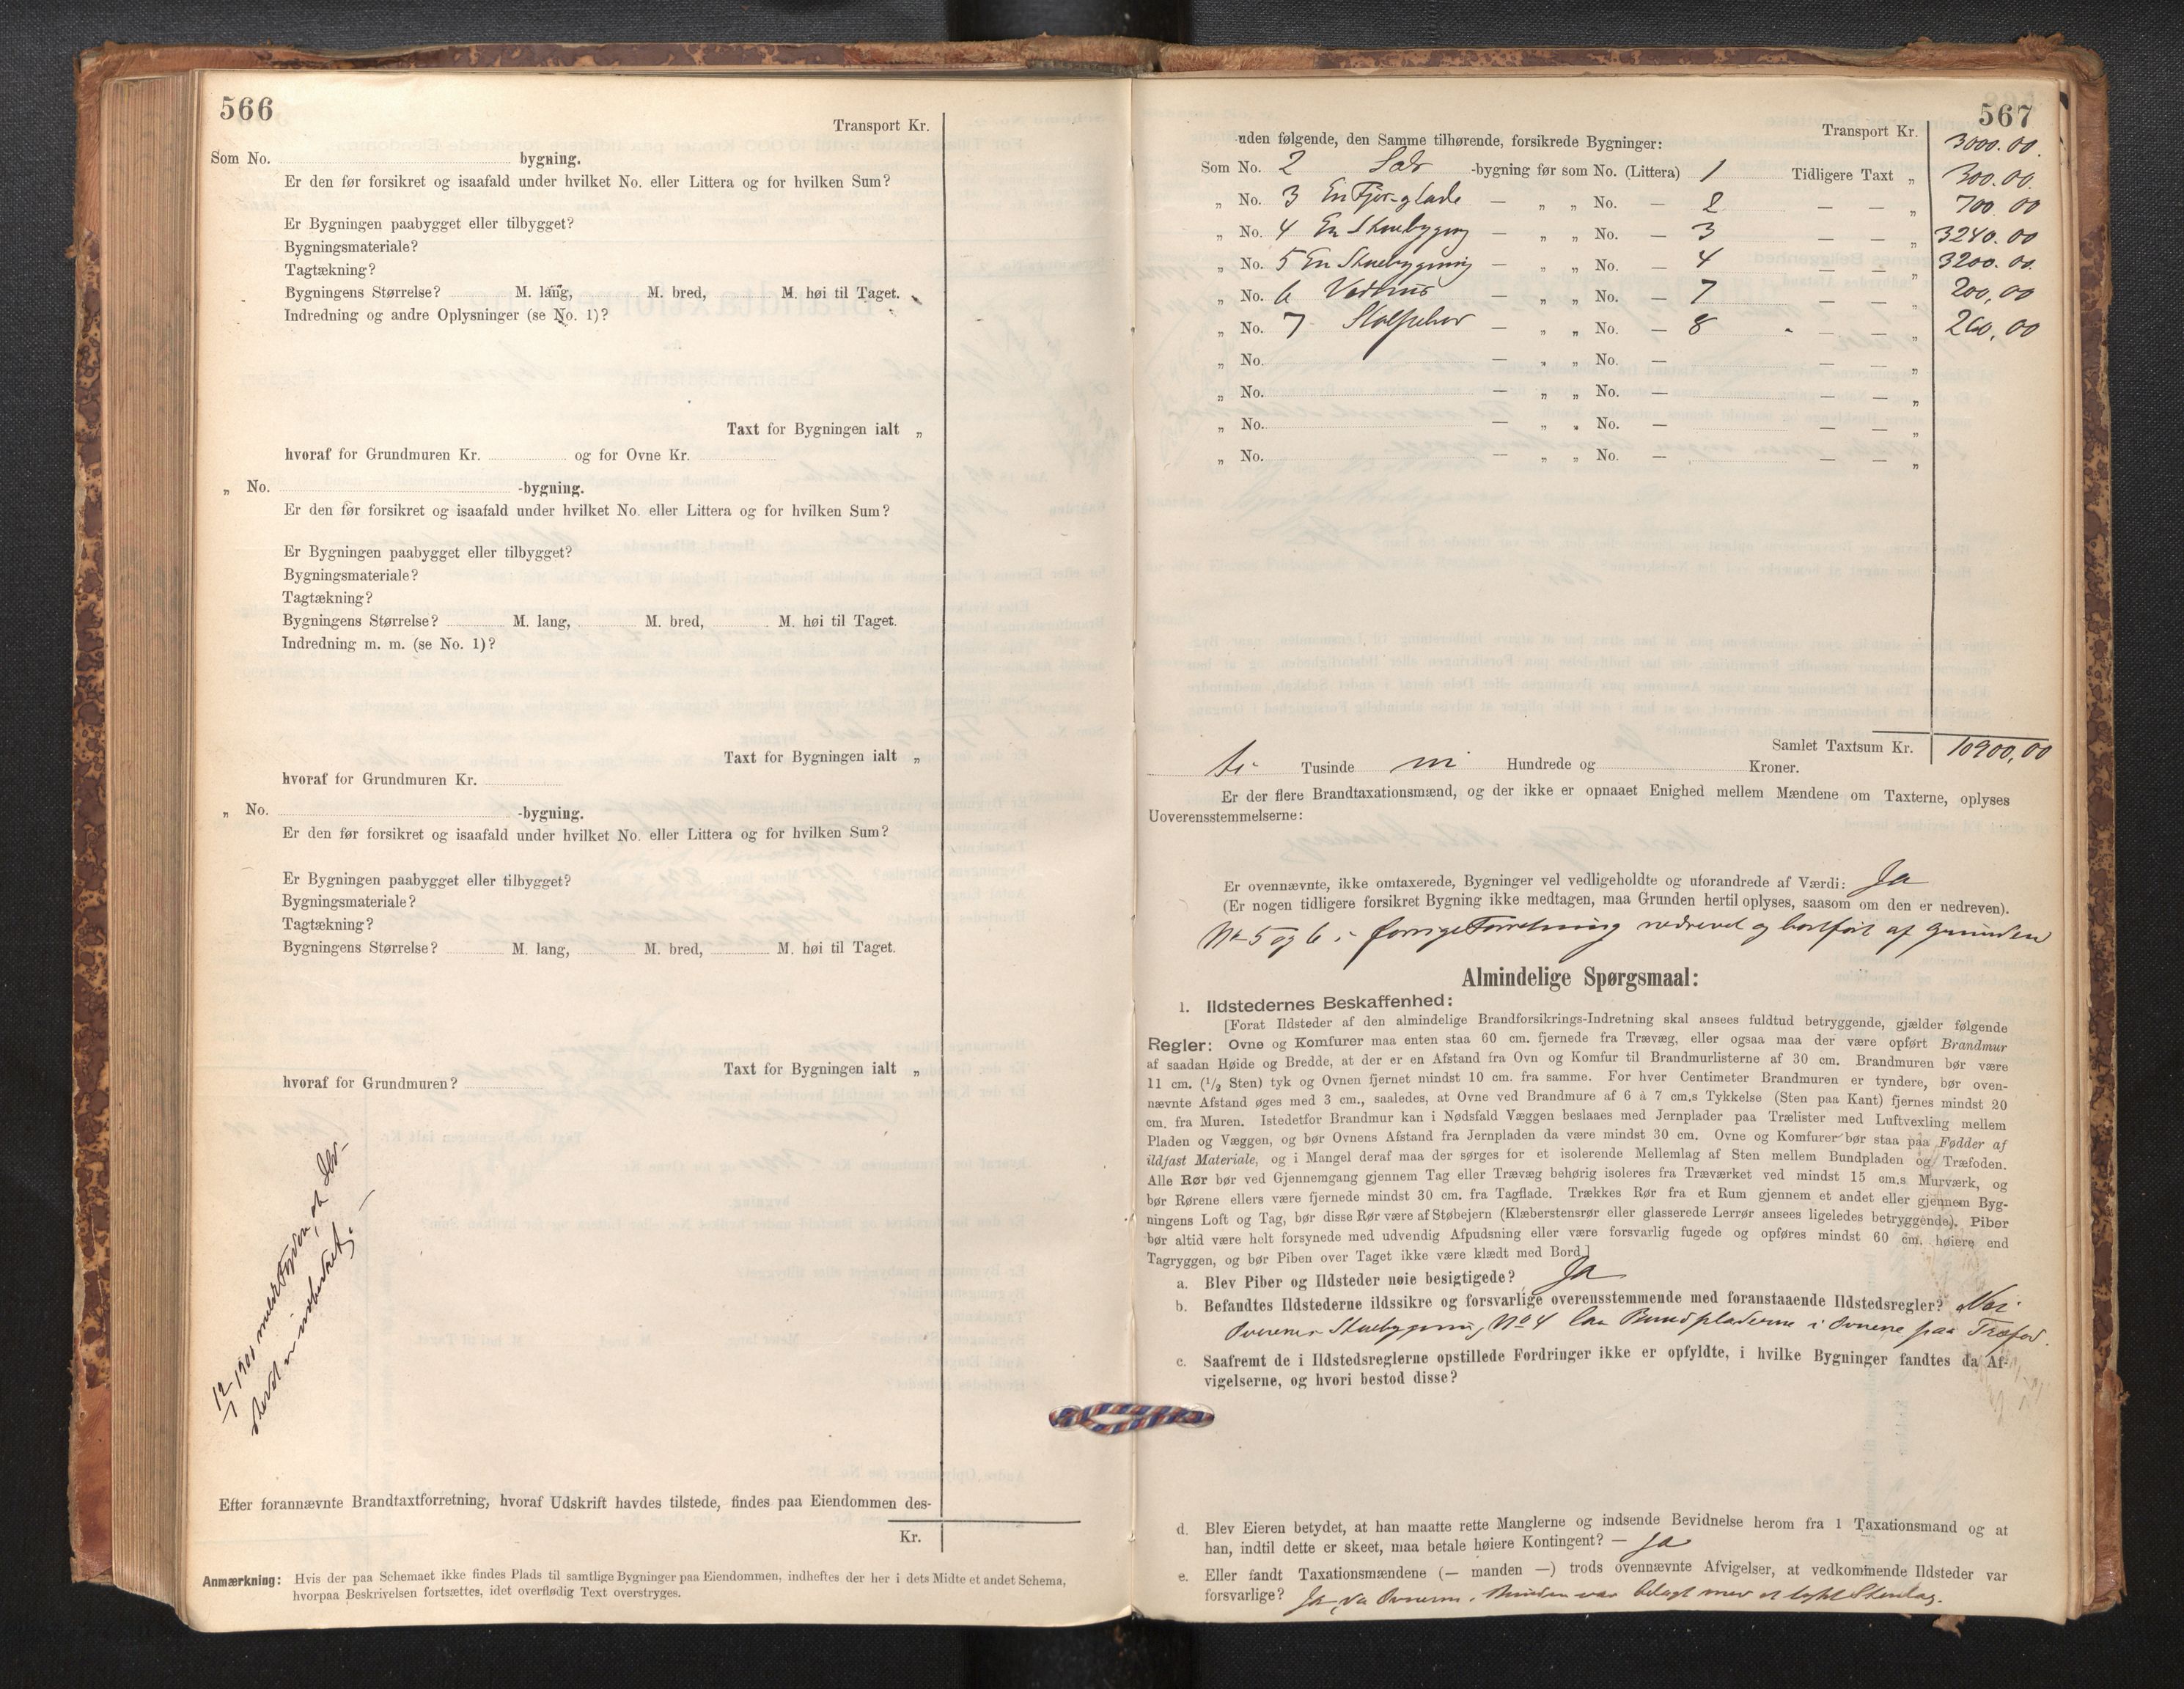 566
Transport Kr.
Som No. bygning.
Er den før forsikret og isaafald under hvilket No. eller Littera og for hvilken Sum?
Er Bygningen paabygget eller tilbygget?
Bygningsmateriale?
Tagtækning?
Bygningens Størrelse? M. lang, M. bred, M. høi til Taget.
Indredning og andre Oplysninger (se No. 1)?
Taxt for Bygningen ialt „
hvoraf for Grundmuren Kr. og for Ovne Kr.
„ No. -bygning.
Er den før forsikret og isaafald under hvilket No. eller Littera og for hvilken Sum?
Er Bygningen paabygget eller tilbygget?
Bygningsmateriale?
Tagtækning?
Bygningens Størrelse? M. lang, M. bred, M. høi til Taget.
Indredning m. m. (se No. 1)?
Taxt for Bygningen ialt „
hvoraf for Grundmuren Kr.
„ No. -bygning.
Er den før forsikret og isaafald under hvilket No. eller Littera og for hvilken Sum?
Er Bygningen paabygget eller tilbygget?
Bygningsmateriale?
Tagtækning?
Bygningens Størrelse? M. lang, M. bred, M. høi til Taget.
Taxt for Bygningen ialt „
hvoraf for Grundmuren?
12/7 1901
Efter forannævnte Brandtaxtforretning, hvoraf Udskrift havdes tilstede, findes paa Eiendommen des-
Kr.
Anmærkning: Hvis der paa Schemaet ikke findes Plads til samtlige Bygninger paa Eiendommen, indheftes der her i dets Midte et andet Schema,
hvorpaa Beskrivelsen fortsættes, idet overflødig Text overstryges.
567
Transport Kr. 3000.00.
uden følgende, den Samme tilhørende, forsikrede Bygninger:
Som No. 2 -bygning før som No. (Littera) 1 Tidligere Taxt „ 300.00.
„ No. 3 En Fjøs- og lade — „ „ No. — 2 — — „ 700 00
„ No. 4 En Stuebygning — „ „ No. — 3 — — „ 3240.00
„ No. 5 En Stuebygning — „ „ No. — 4 — — „ 3200.00.
„ No. 6 Vedhus — „ „ No. — 7 — — „ 200,00
„ No. 7 — „ „ No. — 8 — — „ 260,00
„ No. — „ „ No. — — — „
„ No. — „ „ No. — — — „
„ No. — „ „ No. — — — „
„ No. — „ „ No. — — — „
Samlet Taxtsum Kr. 10900,00
ti Tusinde ni Hundrede og Kroner.
Er der flere Brandtaxationsmænd, og der ikke er opnaaet Enighed mellem Mændene om Taxterne, oplyses
Uoverensstemmelserne:
Er ovennævnte, ikke omtaxerede, Bygninger vel vedligeholdte og uforandrede af Værdi: Ja
(Er nogen tidligere forsikret Bygning ikke medtagen, maa Grunden hertil oplyses, saasom om den er nedreven).
No 5 og 6 i forrige Forretning nedrevet og bortført af Grunden
Almindelige Spørgsmaal:
1. Ildstedernes Beskaffenhed:
[Forat Ildsteder af den almindelige Brandforsikrings-Indretning skal ansees fuldtud betryggende, gjælder følgende
Regler: Ovne og Komfurer maa enten staa 60 cm. fjernede fra Trævæg, eller ogsaa maa der være opført Brandmur
af saadan Høide og Bredde, at der er en Afstand fra Ovn og Komfur til Brandmurlisterne af 30 cm. Brandmuren bør være
11 cm. (1/2 Sten) tyk og Ovnen fjernet mindst 10 cm. fra samme. For hver Centimeter Brandmuren er tyndere, bør oven-
nævnte Afstand øges med 3 cm., saaledes, at Ovne ved Brandmure af 6 à 7 cm.s Tykkelse (Sten paa Kant) fjernes mindst 20
cm. fra Muren. Istedetfor Brandmur kan i Nødsfald Væggen beslaaes med Jernplader paa Trælister med Luftvexling mellem
Pladen og Væggen, og bør Ovnens Afstand fra Jernpladen da være mindst 30 cm. Ovne og Komfurer bør staa paa Fødder af
ildfast Materiale, og i Mangel deraf maa der sørges for et isolerende Mellemlag af Sten mellem Bundpladen og Træfoden.
Alle Rør bør ved Gjennemgang gjennem Tag eller Trævæg behørig isoleres fra Træværket ved mindst 15 cm.s Murværk, og
bør Rørene ellers være fjernede mindst 30 cm. fra Tagflade. Trækkes Rør fra et Rum gjennem et andet eller gjennem Byg-
ningens Loft og Tag, bør disse Rør være af Støbejern (Klæberstensrør eller glasserede Lerrør ansees ligeledes betryggende). Piber
bør altid være helt forsynede med udvendig Afpudsning eller være forsvarlig fugede og opføres mindst 60 cm. høiere end
Tagryggen, og bør Piben over Taget ikke være klædt med Bord.]
a. Blev Piber og Ildsteder nøie besigtigede? Ja
b. Befandtes Ildstederne ildssikre og forsvarlige overensstemmende med foranstaaende Ildstedsregler? Nei
Stuebygning No 4 laa Bundpladerne i Ovnene paa Træfod.
c. Saafremt de i Ildstedsreglerne opstillede Fordringer ikke er opfyldte, i hvilke Bygninger fandtes da Af-
vigelserne, og hvori bestod disse?
d. Blev Eieren betydet, at han maatte rette Manglerne og indsende Bevidnelse herom fra 1 Taxationsmand og at
han, indtil dette er skeet, maa betale høiere Kontingent? — Ja
e. Eller fandt Taxationsmændene (— manden —) trods ovennævnte Afvigelser, at vedkommende Ildsteder var
forsvarlige? Ja, da Ovnenes Bunden var belagt med et tykt Stenlag.